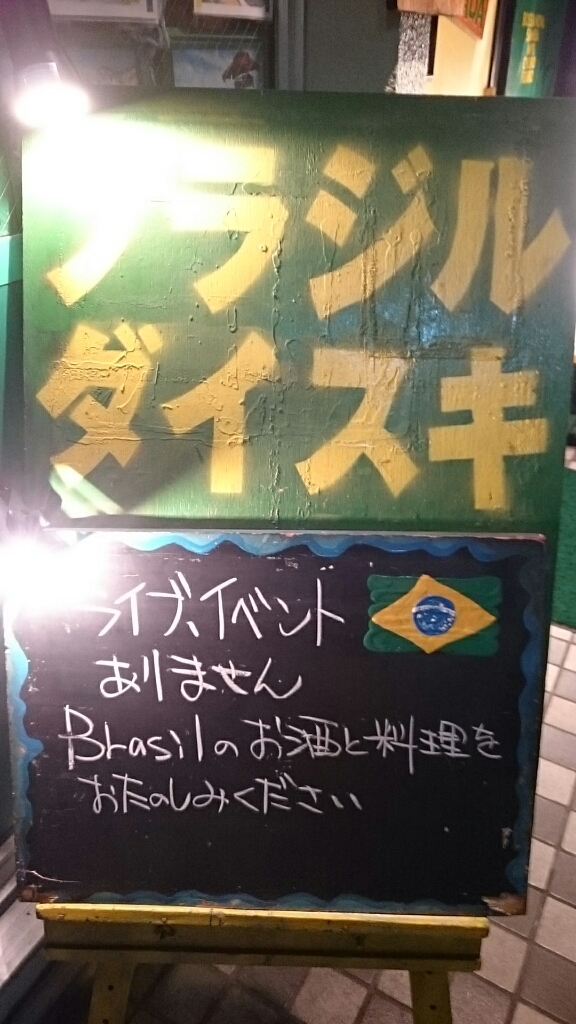 ブラジル
ダイスキ
ライブ、イベント
ありません
Brasilのお酒と料理を
おたのしみください